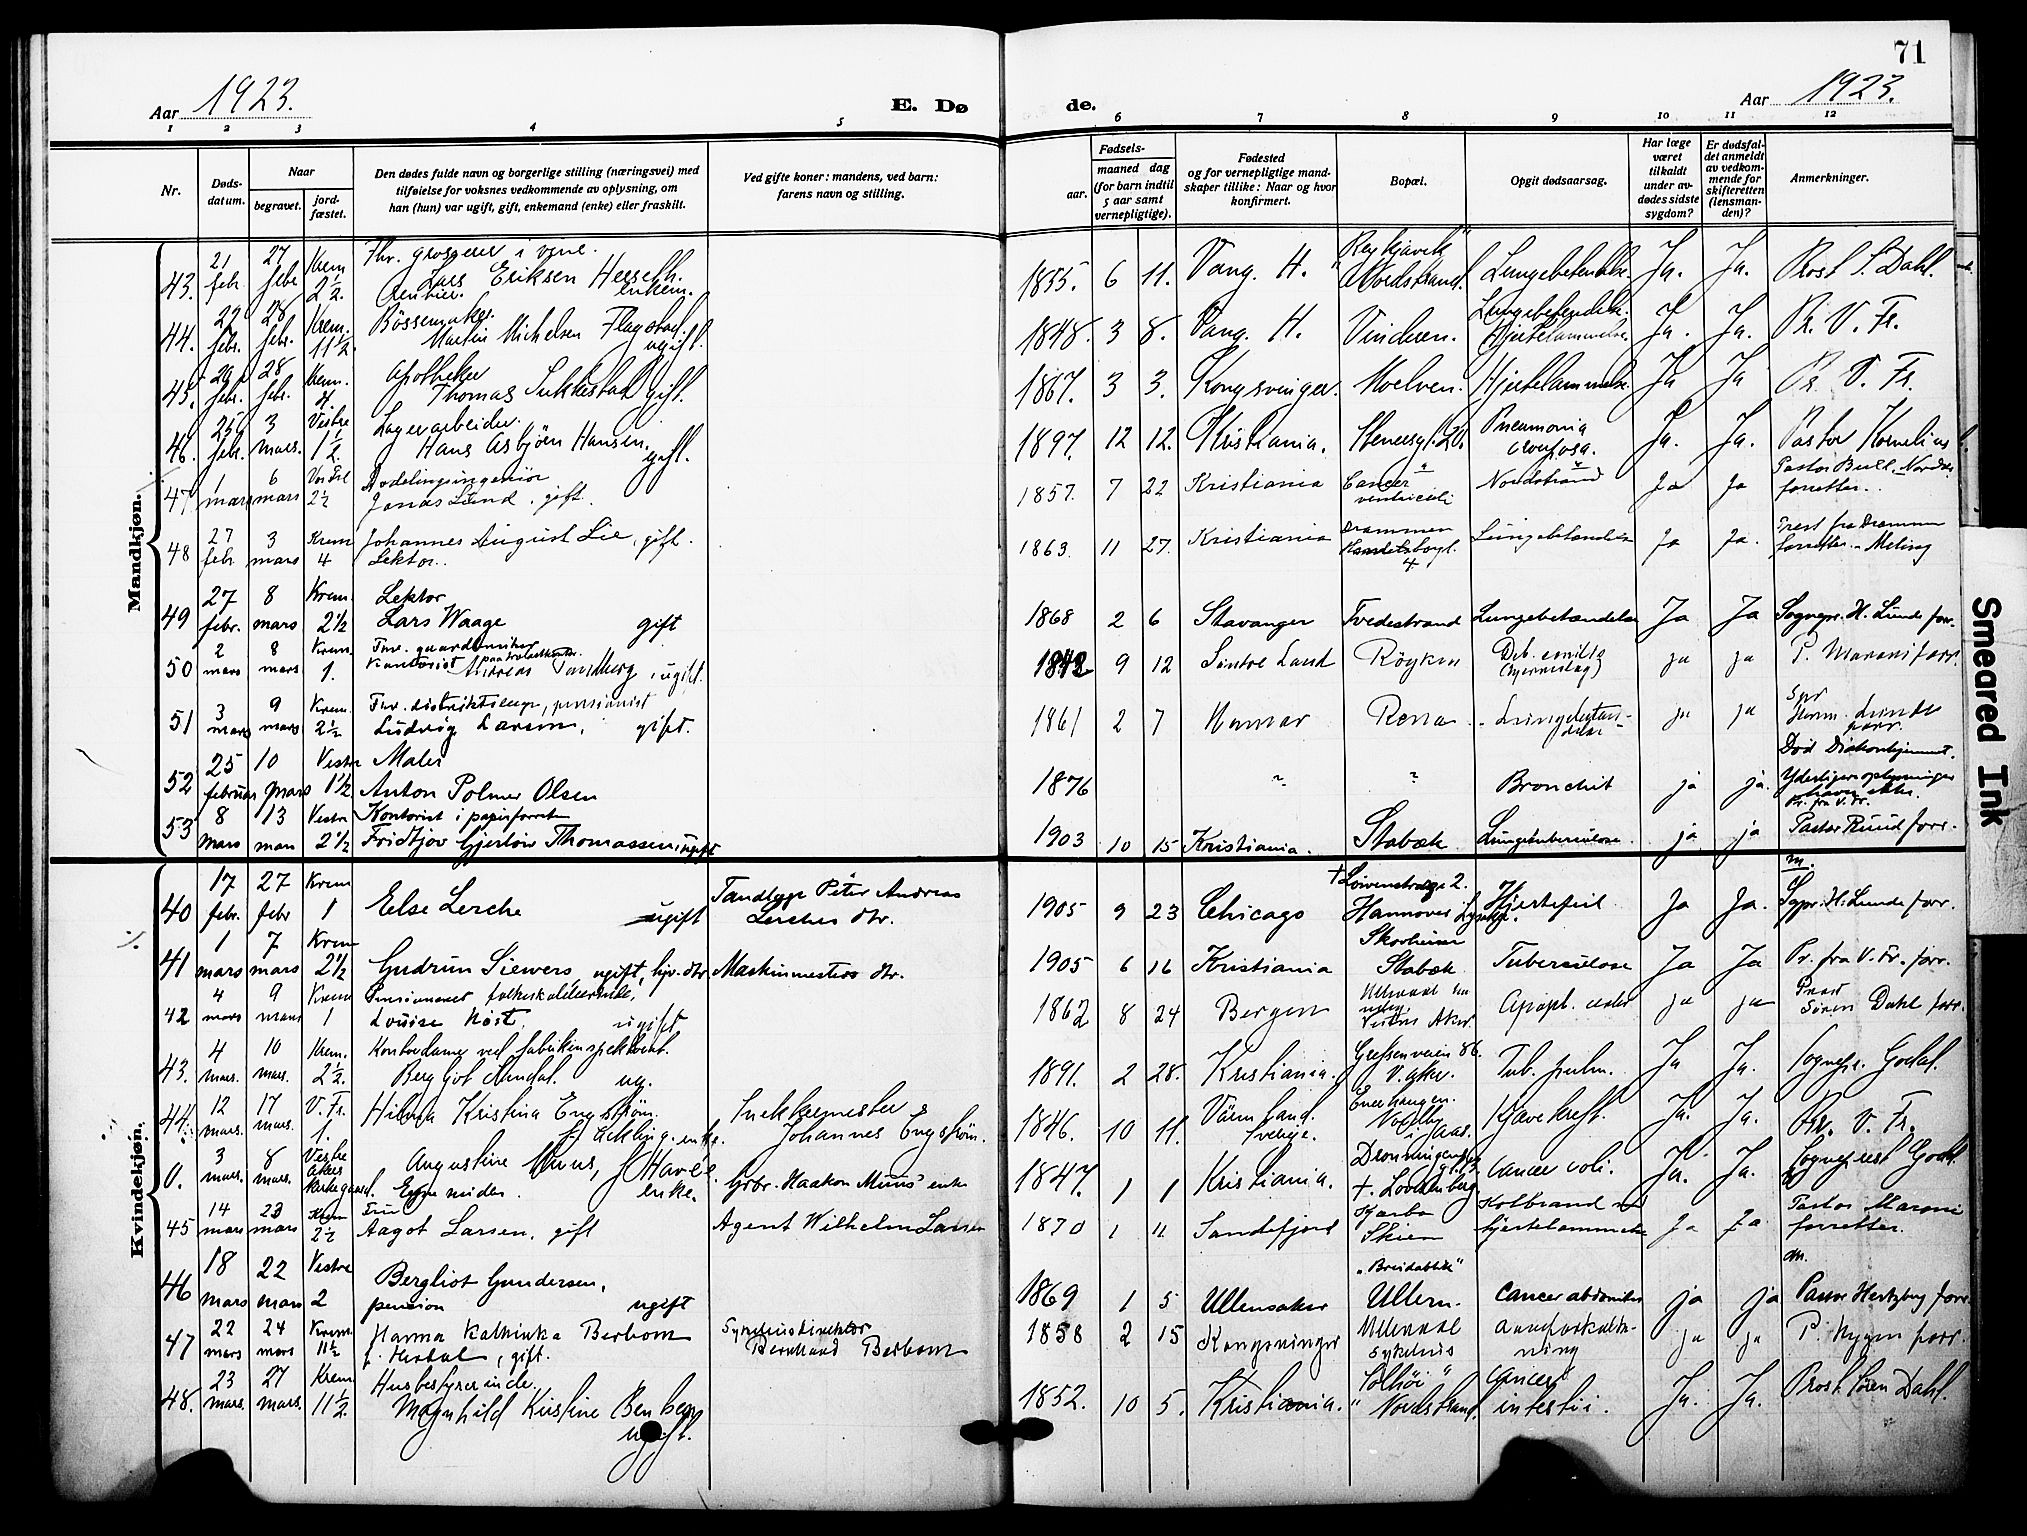 71
Aar 1923.
E. Dø
de.
Aar 1923.
1 2 3 4 5 6 7 8 9 10 11 12
Nr.
Døds-
datum.
Naar
begravet.
jord-
fæstet.
Den dødes fulde navn og borgerlige stilling (næringsvei) med
tilføielse for voksnes vedkommende av oplysning, om
han (hun) var ugift, gift, enkemand (enke) eller fraskilt.
Ved gifte koner: mandens, ved barn:
farens navn og stilling.
Fødsels-
aar.
maaned dag
(for barn indtil
5 aar samt
vernepligtige).
Fødested
og for vernepligtige mand-
skaper tillike: Naar og hvor
konfirmert.
Bopæl.
Opgit dødsaarsag.
Har læge
været
tilkaldt
under av-
dødes sidste
sygdom?
Er dødsfal-
det anmeldt
av vedkom-
mende for
skifteretten
(lensman-
den)?
Anmerkninger.
Mandkjøn.
43. 21 febr. 27 febr Krem 2½. Fhv. grosserer i vine. Lars Eriksen Hesseth. enkem. 1855. 6 11. Vang. H. "Reykjavik" Nordstrand. Lungebetændelse. Ja. Ja. Prost S. Dahl.
44. febr. 28 febr. Krem. 11½. Rentier. Bössemaker. Martin Michelsen Flagstad. ugift. 1848. 3 8. Vang. H. Vinderen. Lungebetændelse. Hjertelammelse. Ja. Ja. Pr. V. Fr.
45. febr. 28 febr. Krem. Apotheker Thomas Sukkestad gift. 1867. 3 3. Kongsvinger. Moelven. Hjertelammelse. Ja Ja Pr. V. Fr.
46. 25 febr. 3 mars. Vestre 1½. Lagerarbeider. Hans Asbjörn Hansen. gift. 1897. 12 12. Kristiania. Stenersgt. 20. Pneumonia crouposa. Ja. Ja. Pastor Kornelius
47 1 mars 6 mars 2½ Avdelingsingeniör Jonas Lund, gift. 1857. 7 22 Kristiania Cancer ventriculi Nordstrand Ja Ja Pastor Bull - Nordstr. forretter.
48 27 febr. 3 mars Krem 4 Johannes August Lie, gift. Lektor. 1863. 11 27. Kristiania Drammen 4. Lungebetændelse Ja Ja. Prest fra Drammen forretter. - Meling
49 27 febr. 8 mars Krem. 2½ Lektor Lars Waage gift 1868 2 6 Stavanger Tvedestrand Lungebetændelse Ja Ja Sognepr. H. Lunde forr.
50 2 mars 8 mars Krem. 1. Fhv. gaardbruker kontorist Andreas Tandberg, ugift. 1842 9 12 Söndre Land Röyken Deb. senilis (hjerneslag) ja ja P. Maroni forr.
51 3 mars 9 mars Krem. 2½ Fhv. distriktslæge, pensionist Ludvig Larsen, gift. 1861 2 7 Hamar Rena Lungebetændelse ja ja Spr Herm. Lunde forr.
52 25 februar 10 mars Vestre 1½ Maler Anton Polmer Olsen 1876 " ? Bronchit ja ja. Död Diakonhjemmet. Yderligere oplysninger haves ikke. Pr. fra V. Fr.
53 8 mars 13 mars Vestre 2½ Kontorist i papirforretn Fridtjov Gjerlöw Thomassen, ugift 1903 10 15 Kristiania. Stabæk. Lungetuberculose. ja ja Pastor Ruud forr.
Kvindekjøn.
40 17 febr. 27 febr Krem 1 Else Lerche ugift Tandlæge Peter Andreas Lerches dtr. 1905 9 23 Chicago † Lövenskiolds 2. Hannover Hjertefeil Ja Ja. Sgpr. H. Lunde forr.
41 1 mars 7 mars Krem 2½ Gudrun Siewers, ugift, hjv. dtr. Maskinmesters dtr. 1905 6 16 Kristiania Stabæk Tuberculose Ja Ja Pr. fra V. Fr. forr.
42 4 mars 9 mars Krem 1 Pensioneret folkeskolelærerinde, Louise Höst. ugift 1862 8 24 Bergen Ullevaal Vestre Aker Apopl. cerebr ja ja Prost Sören Dahl forr.
43. 4 mars. 10 mars. Krem. 2½. Kontordame ved fabrikinspektorat. Bergljot Mendal. ug. 1891. 2 28. Kristiania. Grefsenveien 86. V. Aker. Tub. pulm. Ja Ja. Sognepr. Godal.
44. 12 mars. 17 mars. V. Fr. 1. Hilma Kristina Engström. enke. Snekkermester Johannes Engström. 1846. 10 11. Värmland. Sverige. Enerhaugen. Kjavekreft. Ja. Ja. Pr. V. Fr.
0. 3 mars. 8 mars. Vestre Akers Kirkegaard. Augustine Muus, f. Havre. enke. Grbr. Haakon Muus' enke 1847. 1 1 Kristiania. Dronningensgt. † Lovisenberg. cancer coli. Ja. Ja. Sogneprest Godal.
45 14 mars 23 mars Krem 2½ Frue Aagot Larsen, gift Agent Wilhelm Larsen 1870 1 11 Sandefjord Skien Kolbrand hjertelammelse Ja Ja Pastor Maroni forretter.
46 18 mars 22 mars Vestre 2 Bergliot Gundersen, pension ugift 1869 1 5 Ullensaker "Breidablik" Ullern. Cancer abdominis ja ja Hertzberg forr.
47 22 mars 24 mars Krem. 11½ Hanna Kathinka Berbom f. Herdal, gift. Sykehusdirektör Bernhard Berbom 1858 2 15 Kongsvinger Ullevaal sykehus aareforkalkning ja ja P. Nygen forr.
48. 23 mars. 27 mars. Krem 11½. Husbestyrerinde. Magnhild Kristine Benberg ugift. 1852. 10 5. Kristiania. "Solhöi" Nordstrand. cancer intestii. Ja. Ja. Prost Sören Dahl.
Smeared Ink